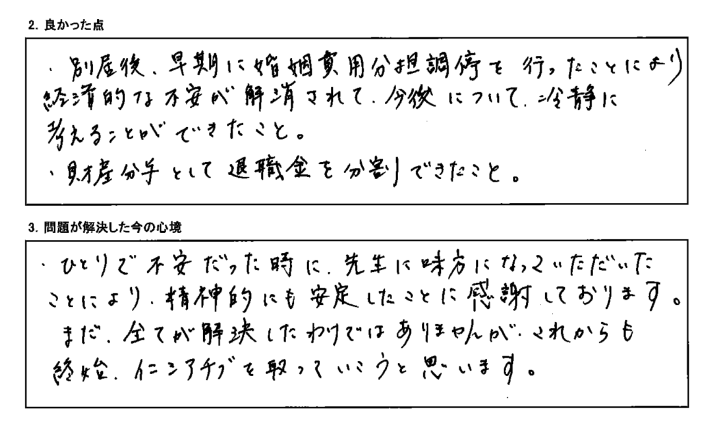 2. 良かった点
・別居後、早期に婚姻費用分担調停を行ったことにより
経済的な不安が解消されて、今後について、冷静に
考えることができたこと。
・財産分与として退職金を分割できたこと。
3. 問題が解決した今の心境
・ひとりで不安だった時に、先生に味方になっていただいた
ことにより、精神的にも安定したことに感謝しております。
まだ、全てが解決したわけではありませんが、これからも
終始、イニシアチブを取っていこうと思います。